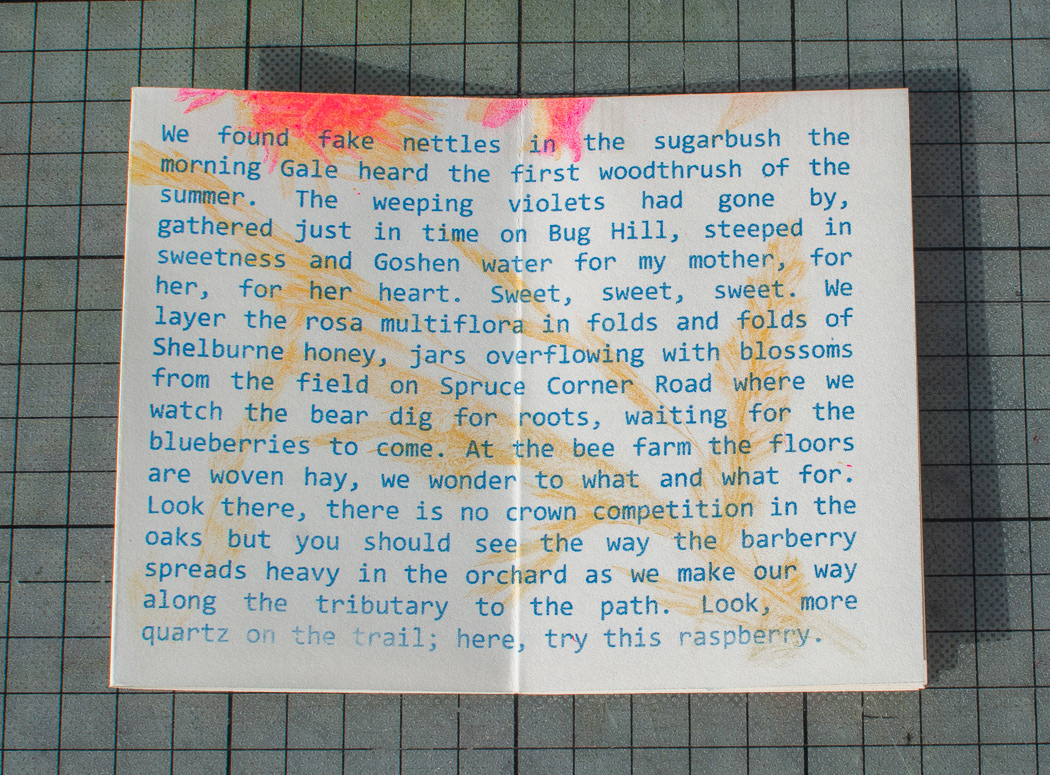 We found fake nettles in the sugarbush the
morning Gale heard the first woodthrush of the
summer. The weeping violets had gone by,
gathered just in time on Bug Hill, steeped in
sweetness and Goshen water for my mother, for
her, for her heart. Sweet, sweet, sweet. We
layer the rosa multiflora in folds and folds of
Shelburne honey, jars overflowing with blossoms
from the field on Spruce Corner Road where we
watch the bear dig for roots, waiting for the
blueberries to come. At the bee farm the floors
are woven hay, we wonder to what and what for.
Look there, there is no crown competition in the
oaks but you should see the way the barberry
spreads heavy in the orchard as we make our way
along the tributary to the path. Look, more
quartz on the trail; here, try this raspberry.